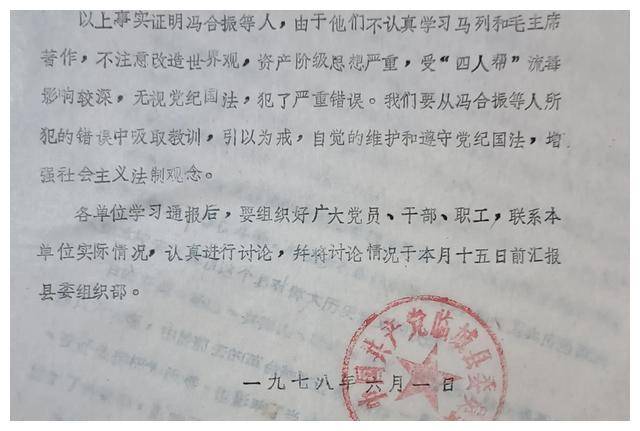 以上事实证明冯合振等人，由于他们不认真学习马列和毛主席
著作，不注意改造世界观，资产阶级思想严重，受“四人帮”流毒
影响较深，无视党纪国法，犯了严重错误。我们要从冯合振等人所
犯的错误中吸取教训，引以为戒，自觉的维护和遵守党纪国法，增
强社会主义法制观念。
各单位学习通报后，要组织好广大党员、干部、职工，联系本
单位实际情况，认真进行讨论，并将讨论情况于本月十五日前汇报
县委组织部。
中国共产党临城县委员
一九七八年六月一日